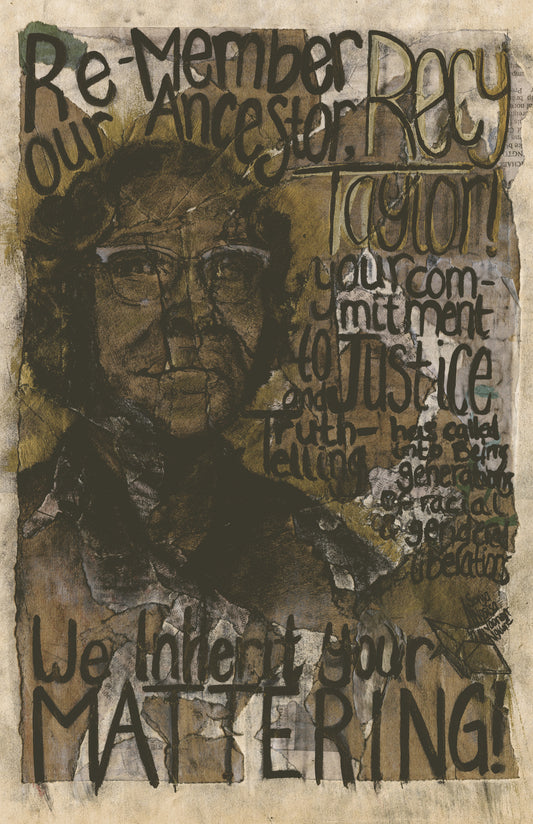 Re-Member
our Ancestor, Recy
Taylor!
your com-
mitment
to Justice
and
Truth-
Telling
has called
into Being
generations
of racial
& gender
liberations
We Inherit your
MATTERING!